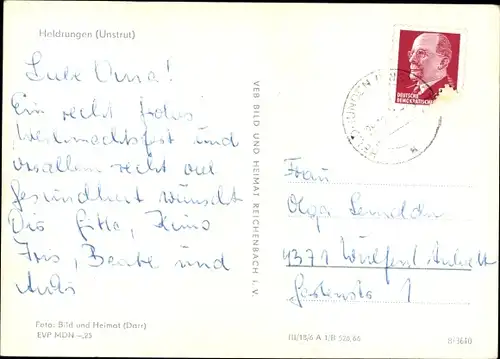 Heldrungen (Unstrut)
Liebe Oma!
Ein recht frohes
Weihnachtsfest und
vor allem recht viel
gesundheit wünscht
Dir Gitta, Heino
Iris, Beate und
Foto: Bild und Heimat (Darr)
EVP MDN -,23
VEB BILD UND HEIMAT REICHENBACH i. V.
DEUTSCHE
DEMOKRATISCHE
Frau
Olga
4371 Wulfen Anhalt
1
III/18/6 A 1/B 526/66